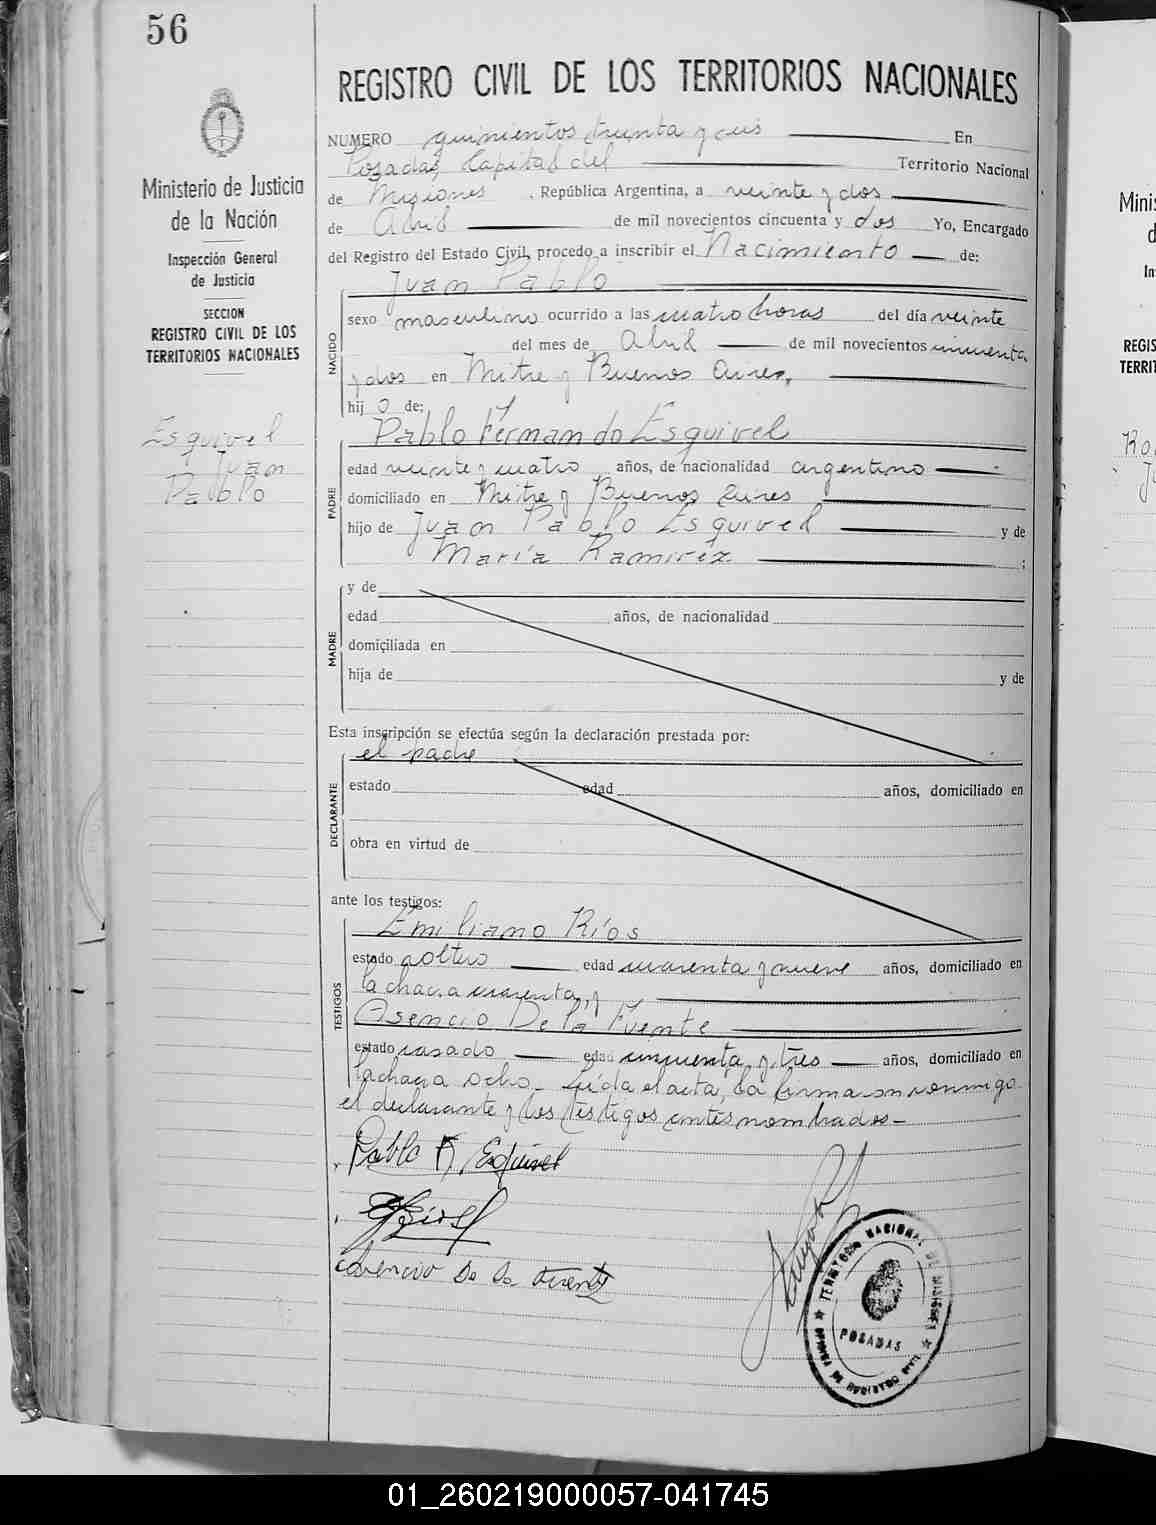 56
REGISTRO CIVIL DE LOS TERRITORIOS NACIONALES
Ministerio de Justicia
de la Nación
Inspección General
de Justicia
SECCION
REGISTRO CIVIL DE LOS
TERRITORIOS NACIONALES
Esquivel
Juan
Pablo
NUMERO quinientos treinta y seis En
Posadas, Capital del Territorio Nacional
de Misiones, República Argentina, a veinte y dos
de Abril de mil novecientos cincuenta y dos Yo, Encargado
del Registro del Estado Civil, procedo a inscribir el Nacimiento de:
Juan Pablo
NACIDO
sexo masculino ocurrido a las cuatro horas del día veinte
del mes de Abril de mil novecientos cincuenta
y dos en Mitre y Buenos Aires,
hijo de:
Pablo Fernando Esquivel
PADRE
edad veinte y cuatro años, de nacionalidad argentino
domiciliado en Mitre y Buenos Aires
hijo de Juan Pablo Esquivel y de
María Ramírez ;
MADRE
y de
edad años, de nacionalidad
domiciliada en
hija de y de
Esta inscripción se efectúa según la declaración prestada por:
el padre
DECLARANTE
estado edad años, domiciliado en
obra en virtud de
ante los testigos:
Emiliano Ríos
TESTIGOS
estado soltero edad cuarenta y nueve años, domiciliado en
la chacra cuarenta, y
Asencio De la Fuente
estado casado edad cincuenta y tres años, domiciliado en
la chacra ocho. Leída el acta, la firman conmigo
el declarante y los testigos antes nombrados-
Pablo F. Esquivel
E Ríos
Asencio De La Fuente
TERRITORIO NACIONAL DE MISIONES
POSADAS
01_260219000057-041745
Minis
d
In
REGIS
TERRIT